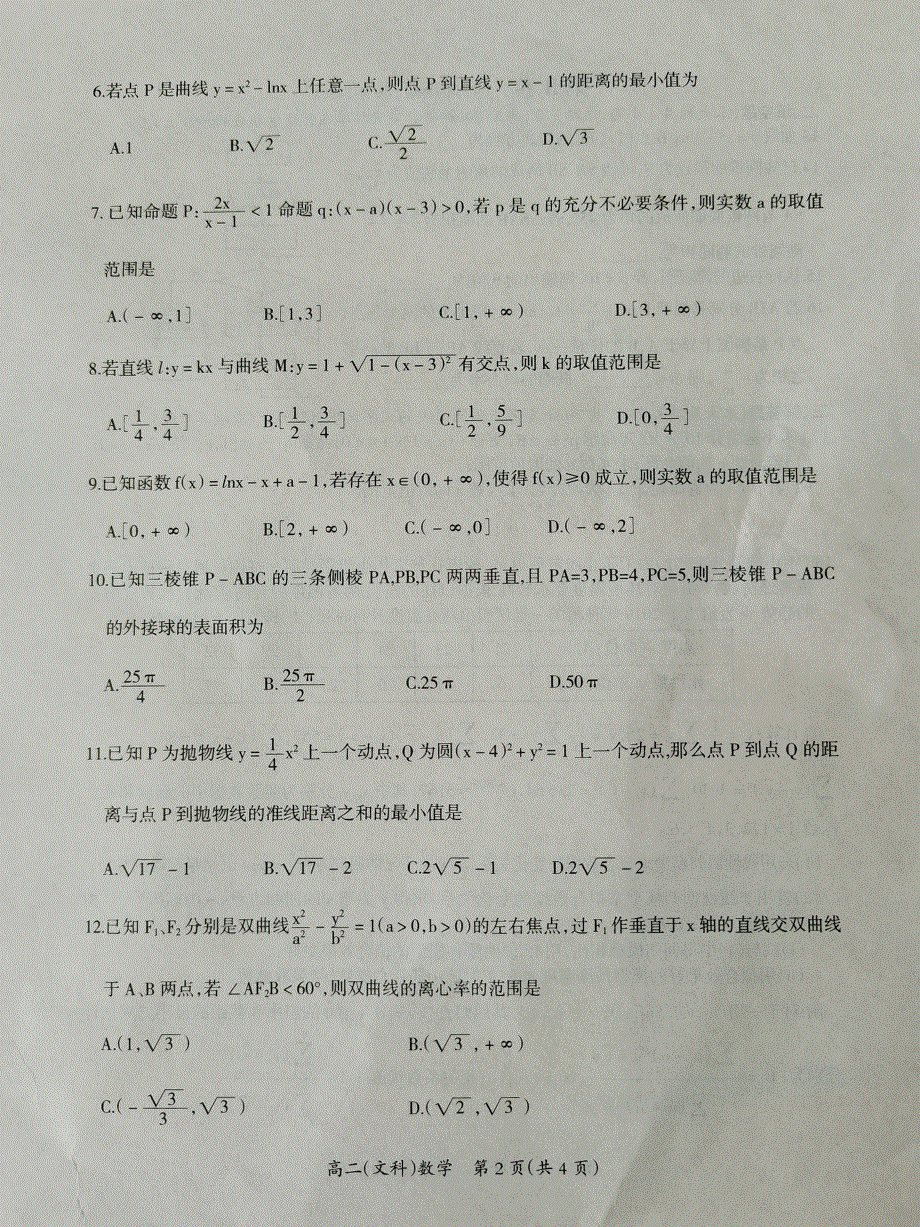 6.若点 P 是曲线 y = x² - lnx 上任意一点,则点 P 到直线 y = x - 1 的距离的最小值为
A.1 B.√2 C.√2/2 D.√3
7. 已知命题 P: 2x/(x-1) < 1 命题 q:(x - a)(x - 3) > 0,若 p 是 q 的充分不必要条件,则实数 a 的取值
范围是
A.( - ∞,1] B.[1,3] C.[1, + ∞) D.[3, + ∞)
8.若直线 l:y = kx 与曲线 M:y = 1 + √(1 - (x - 3)²) 有交点,则 k 的取值范围是
A.[1/4,3/4] B.[1/2,3/4] C.[1/2,5/9] D.[0,3/4]
9.已知函数 f(x) = lnx - x + a - 1,若存在 x∈(0, + ∞),使得 f(x)≥0 成立,则实数 a 的取值范围是
A.[0, + ∞) B.[2, + ∞) C.( - ∞,0] D.( - ∞,2]
10.已知三棱锥 P - ABC 的三条侧棱 PA,PB,PC 两两垂直,且 PA=3,PB=4,PC=5,则三棱锥 P - ABC
的外接球的表面积为
A.25π/4 B.25π/2 C.25π D.50π
11.已知 P 为抛物线 y = 1/4 x² 上一个动点,Q 为圆(x - 4)² + y² = 1 上一个动点,那么点 P 到点 Q 的距
离与点 P 到抛物线的准线距离之和的最小值是
A.√17 - 1 B.√17 - 2 C.2√5 - 1 D.2√5 - 2
12.已知 F₁、F₂ 分别是双曲线 x²/a² - y²/b² = 1(a > 0,b > 0)的左右焦点,过 F₁ 作垂直于 x 轴的直线交双曲线
于 A、B 两点,若 ∠AF₂B < 60°,则双曲线的离心率的范围是
A.(1,√3) B.(√3, + ∞)
C.( - √3/3,√3) D.(√2,√3)
高二(文科)数学 第 2 页(共 4 页)